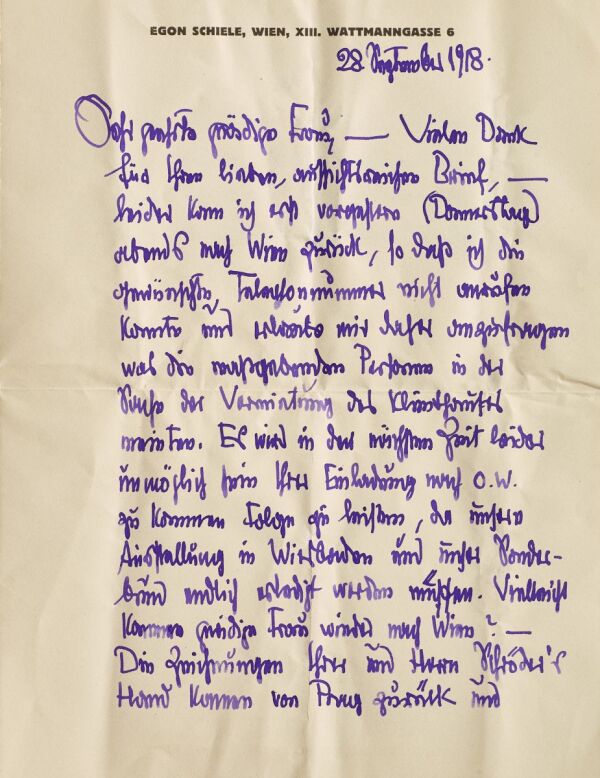 EGON SCHIELE, WIEN, XIII. WATTMANNGASSE 6
28 September 1918.
Sehr geehrte gnädige Frau, — Vielen Dank
für Ihren lieben, aufsichtsreichen Brief, —
leider kam ich erst vorgestern (Donnerstag)
abends nach Wien zurück, so daß ich die
gewünschte Telephonnummer nicht anrufen
konnte und erlaube mir daher anzufragen
was die maßgebenden Personen in der
Sache der Vermietung des Künstlerhauses
meinten. Es wird in der nächsten Zeit leider
unmöglich sein Ihrer Einladung nach O.W.
zu kommen Folge zu leisten, da unsere
Ausstellung in Wiesbaden und unser Sonder-
bund endlich erledigt werden müssen. Vielleicht
kommen gnädige Frau wieder nach Wien? —
Die Zeichnungen Ihrer und Herrn Schröder's
Hand kamen von Prag zurück und